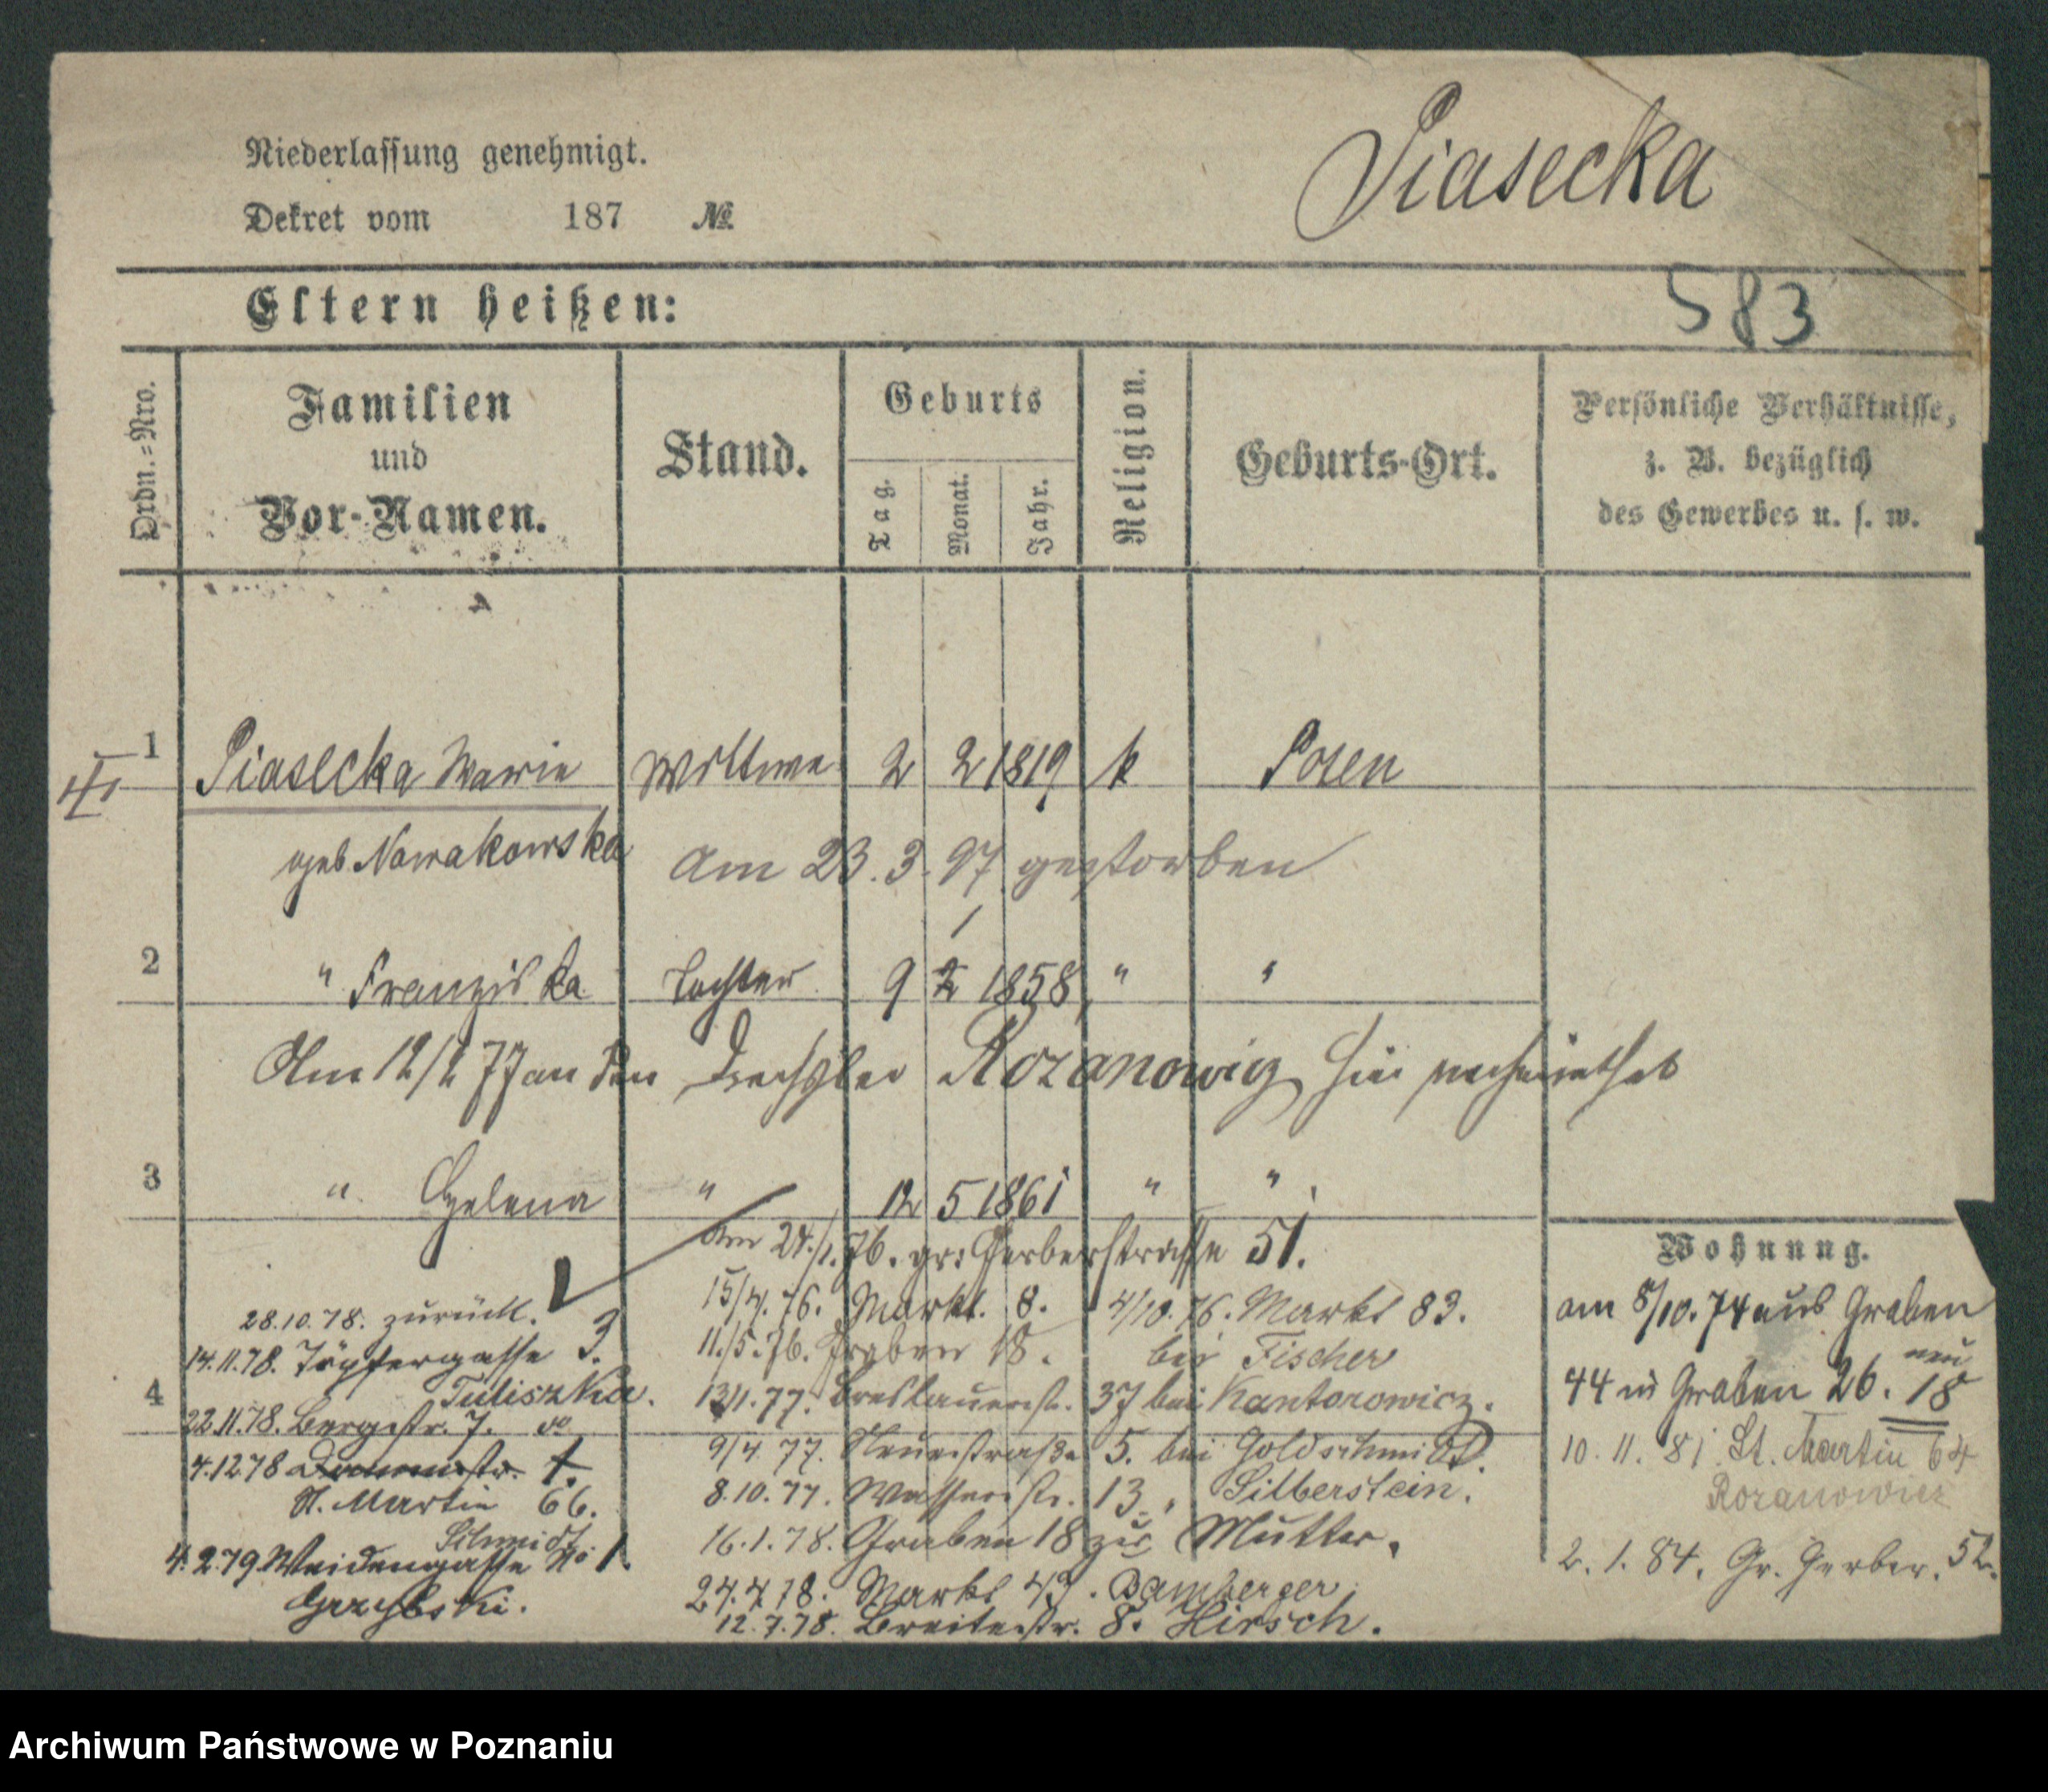 Niederlassung genehmigt.
Piasecka
Dekret vom 187 №
Eltern heißen:
583
Ordn.=Nro.
Familien
und
Vor-Namen.
Stand.
Geburts
Tag.
Monat.
Jahr.
Religion.
Geburts-Ort.
Persönliche Verhältnisse,
z. B. bezüglich
des Gewerbes u. s. w.
1 Piasecka Marie Wittwe 2 2 1819 k Posen
geb Nowakowska
am 23.3.97 gestorben
1
2 " Franziska Tochter 9 2 1858 " "
Am 12/2 77 an den Drechsler Rozanowicz hier verheirathet
3 " Helena " 12 5 1861 " "
4
Am 24./1. 76. gr: Gerberstrasse 51.
15/4. 76. Markt. 8.
4/10. 76. Markt 83.
bei Fischer
11./5. 76. Graben 18.
11.77. Breslauerstr. 37 bei Kantorowicz.
9/4 77. Neuestraße 5. bei Goldschmidt.
8.10.77. Wasserstr. 13 " Silberstein.
16.1.78. Graben 18 zur Mutter.
24.4.78. Markt Bamberger
12.7.78. Breitestr. 8. Hirsch.
28.10.78. zurück.
14.11.78. Töpfergasse 3.
Tuliszka.
22.11.78. Bergstr. 7. do
4.12.78
St. Martin 66.
Schmidt
4.2.79. Weidengasse No 1.
Grzybski.
Wohnung.
am 8/10. 74 aus Graben
44 in Graben 26. neu 18
10.11.81 St. Martin 64
Rozanowicz
2.1.84. Gr. Gerber. 52.
Archiwum Państwowe w Poznaniu